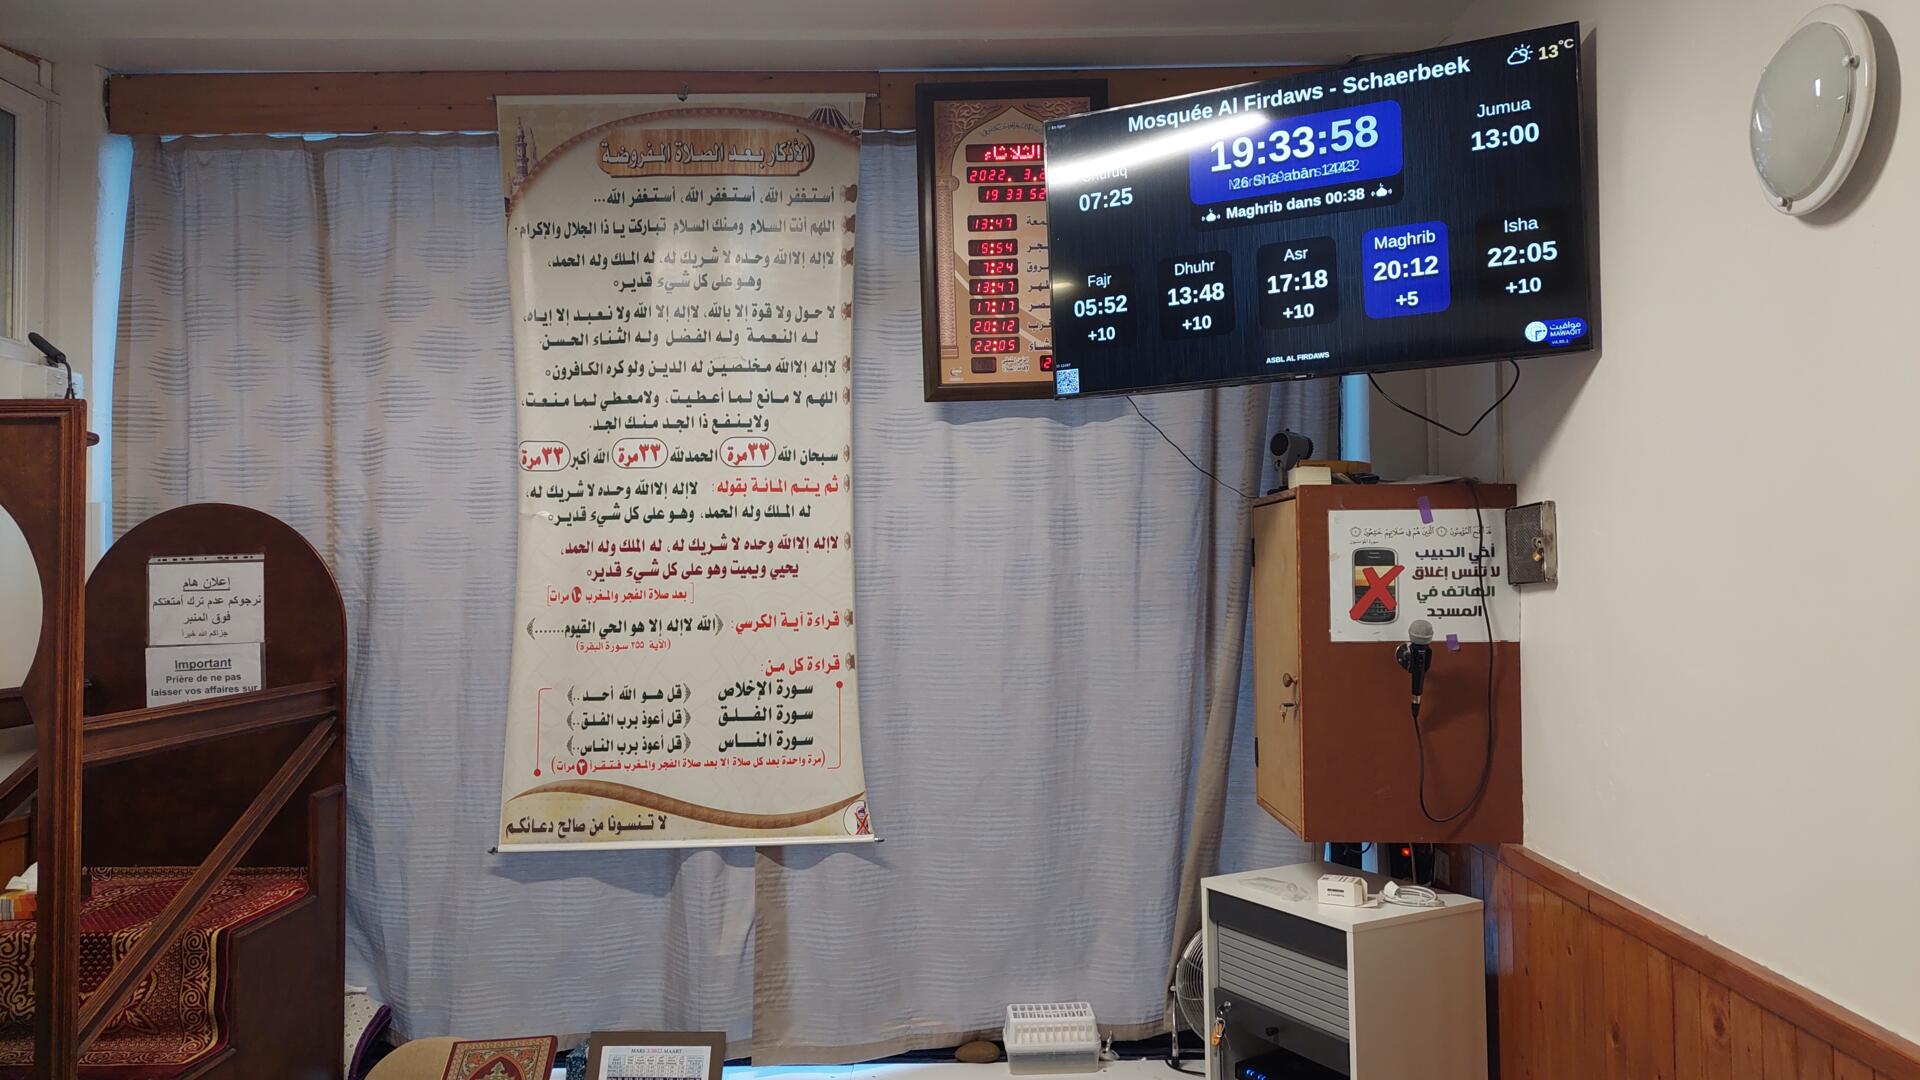 الأذكار بعد الصلاة المفروضة
أستغفر الله، أستغفر الله، أستغفر الله...
اللهم أنت السلام ومنك السلام تباركت يا ذا الجلال والإكرام.
لاإله إلاالله وحده لا شريك له، له الملك وله الحمد،
وهو على كل شيء قدير
لا حول ولا قوة إلا بالله، لاإله إلا الله ولا نعبد إلا إياه،
له النعمة وله الفضل وله الثناء الحسن.
لاإله إلاالله مخلصين له الدين ولو كره الكافرون
اللهم لا مانع لما أعطيت، ولامعطي لما منعت،
ولاينفع ذا الجد منك الجد.
سبحان الله ٣٣مرة الحمدلله ٣٣مرة الله أكبر ٣٣مرة
ثم يتم المائة بقوله: لاإله إلاالله وحده لا شريك له،
له الملك وله الحمد، وهو على كل شيء قدير
لاإله إلاالله وحده لا شريك له، له الملك وله الحمد،
يحيي ويميت وهو على كل شيء قدير
[بعد صلاة الفجر والمغرب ١٠ مرات]
قراءة آية الكرسي: ﴿الله لاإله إلا هو الحي القيوم.......﴾
(الآية ٢٥٥ سورة البقرة)
قراءة كل من:
سورة الإخلاص ﴿قل هو الله أحد..﴾
سورة الفلق ﴿قل أعوذ برب الفلق..﴾
سورة الناس ﴿قل أعوذ برب الناس..﴾
(مرة واحدة بعد كل صلاة إلا بعد صلاة الفجر والمغرب فتقرأ ٣ مرات)
لا تنسونا من صالح دعائكم
الثلاثاء
2022. 3.2
19 33 52
13:47
5:54
7:24
13:47
17:17
20:12
22:05
Mosquée Al Firdaws - Schaerbeek
13°C
19:33:58
26 Sha'abân 1443
Maghrib dans 00:38
Shuruq
07:25
Jumua
13:00
Fajr
05:52
+10
Dhuhr
13:48
+10
Asr
17:18
+10
Maghrib
20:12
+5
Isha
22:05
+10
ASBL AL FIRDAWS
مواقيت
MAWAQIT
أخي الحبيب
لا تنس إغلاق
الهاتف في
المسجد
إعلان هام
نرجوكم عدم ترك أمتعتكم
فوق المنبر
جزاكم الله خيرا
Important
Prière de ne pas
laisser vos affaires sur
MARS 3/2022 MAART